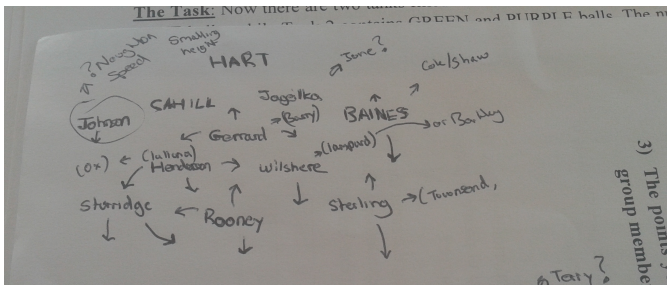 The Task: Now there are two
GREEN and PURPLE balls. The
? Naughton
Speed
Smalling
height
HART
Jone?
Cole/Shaw
Johnson
CAHILL
Jagielka
(Barry)
BAINES
Gerrard
(Lampard)
or Barkley
(Ox)
(Lallana)
Henderson
Wilshere
Sturridge
Rooney
Sterling
(Townsend,
3) The points
group membe
Terry?